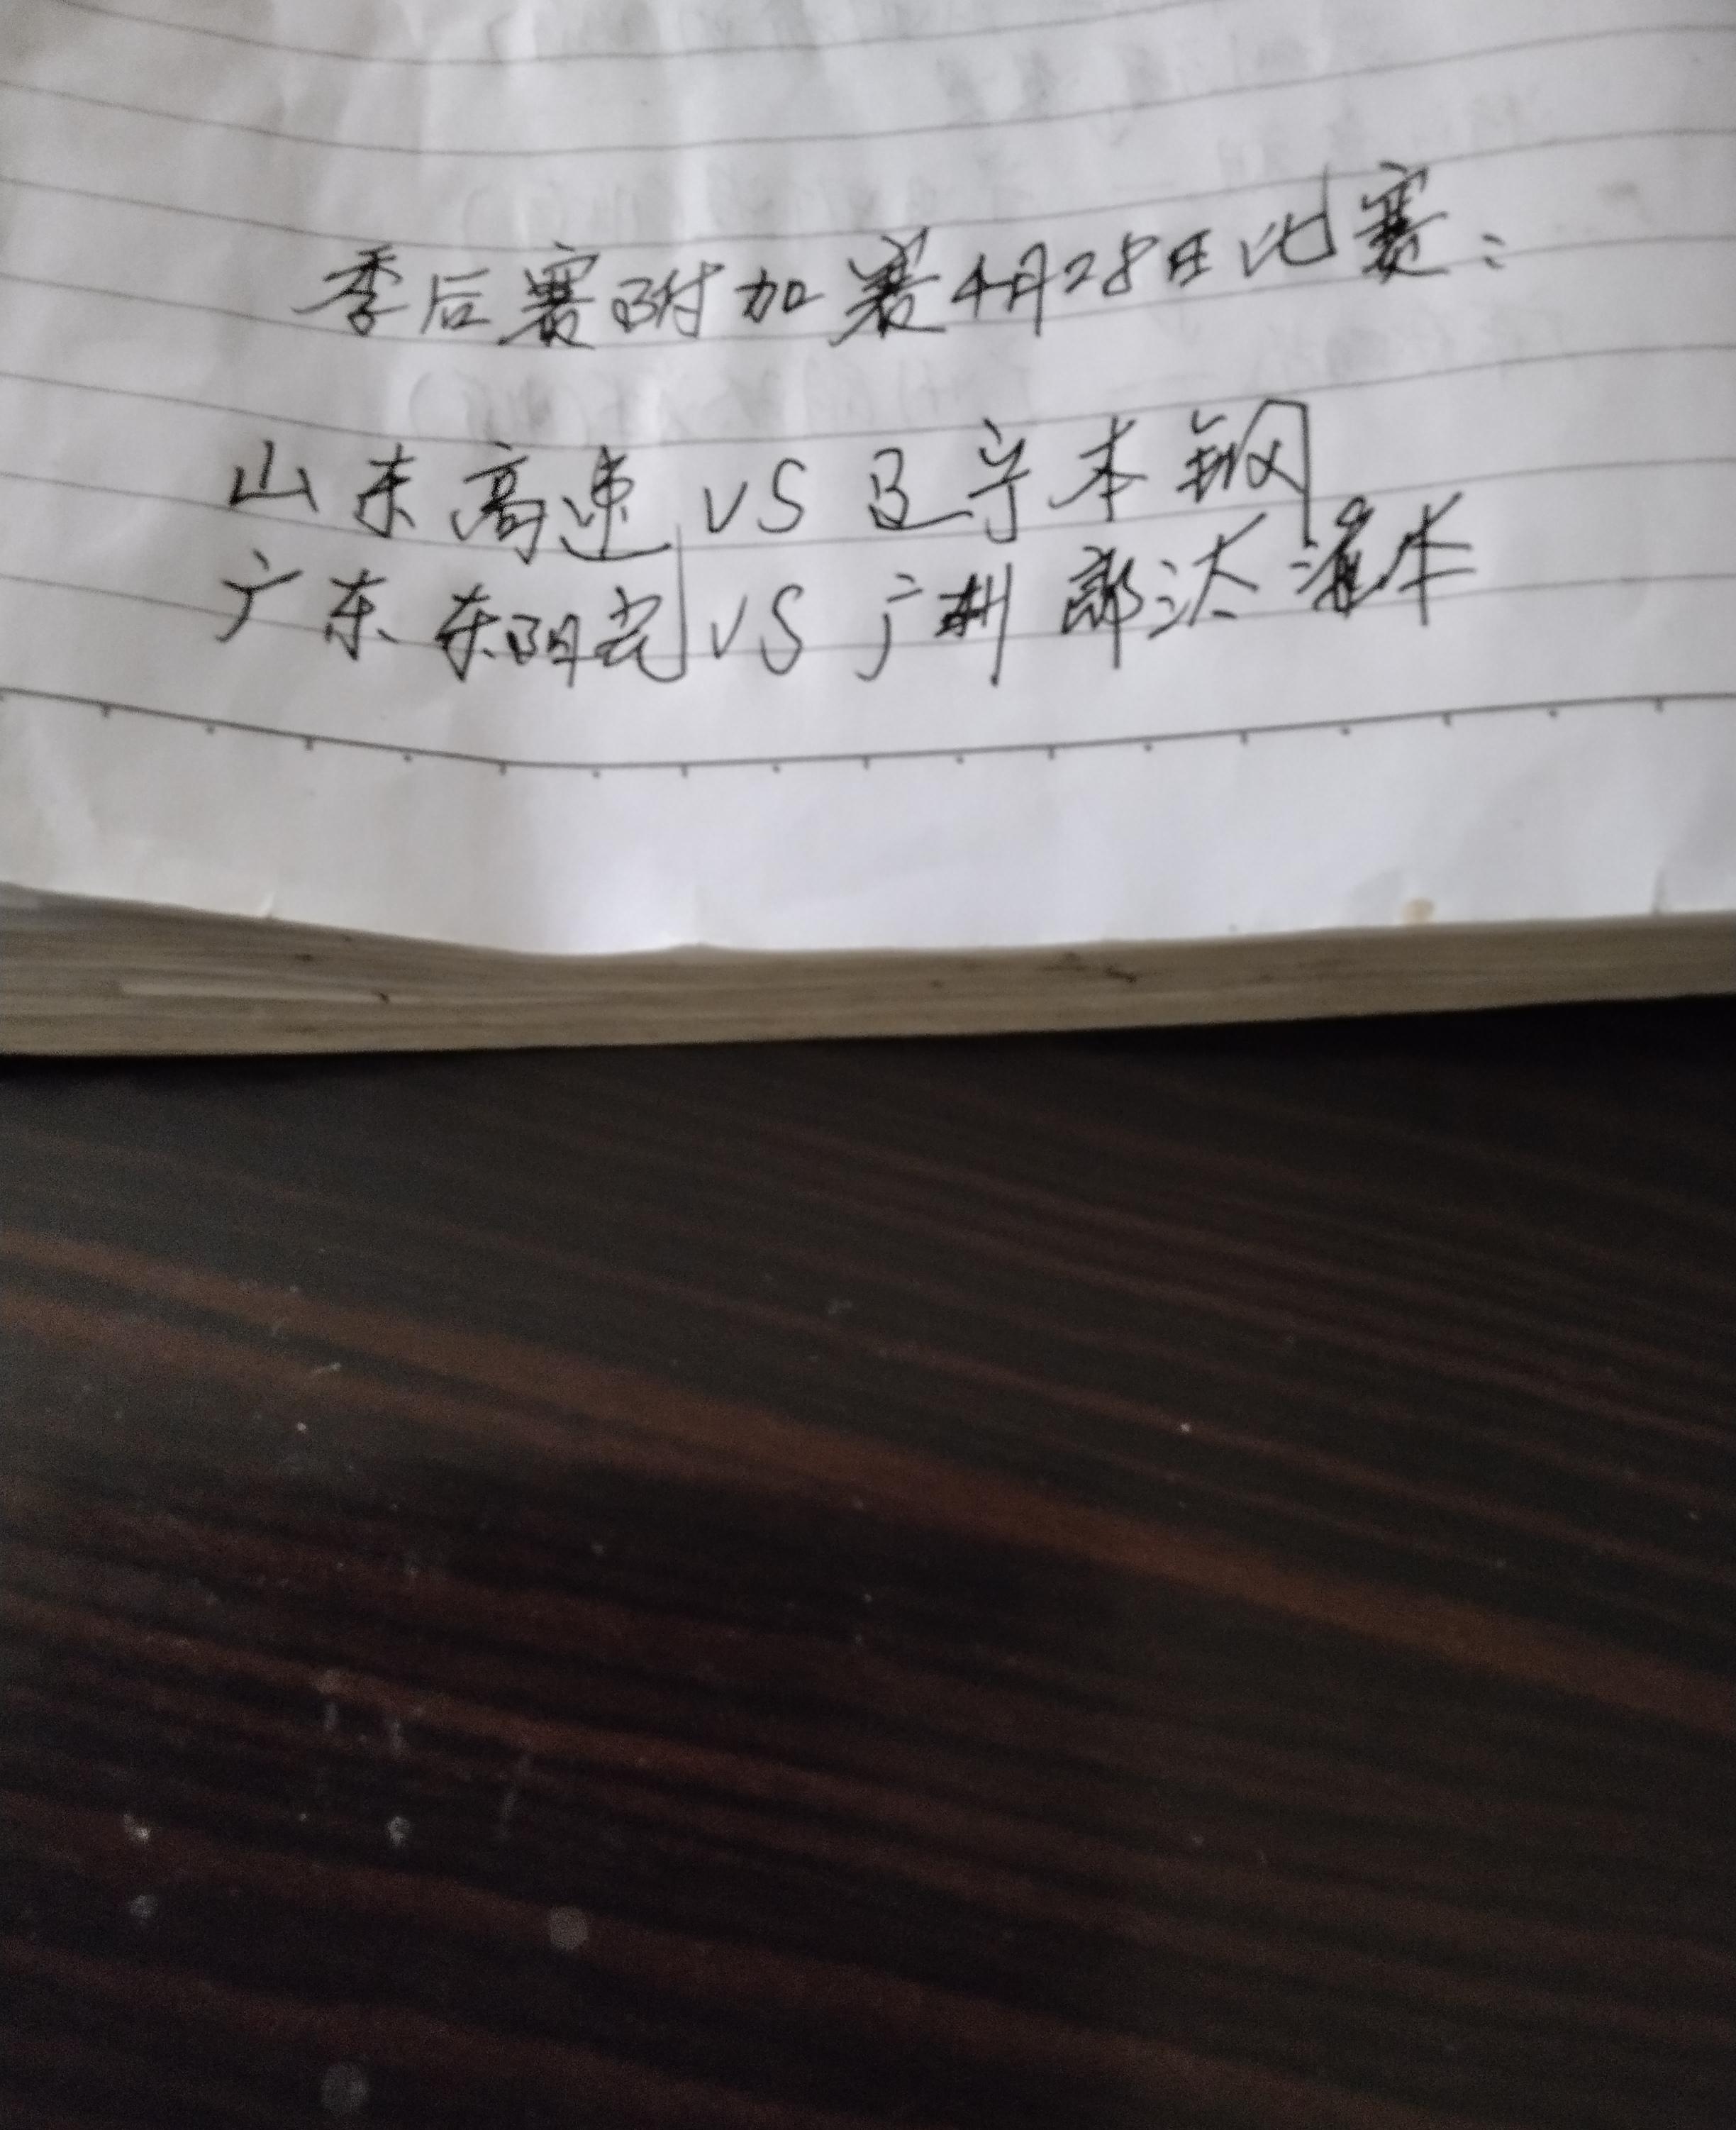 季后赛附加赛4月28日比赛:
山东高速 VS 辽宁本钢
广东东阳光 VS 广州郎汰